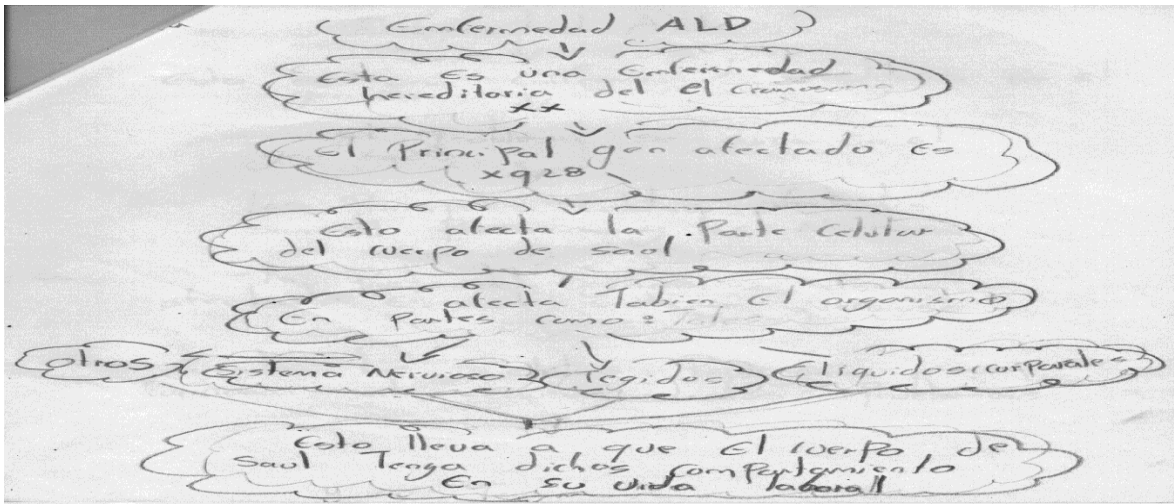 Enfermedad ALD
Esta Es una Enfermedad
hereditoria del el Cromosoma
xx
El Principal gen afectado Es
xq28
Esto afecta la Parte Celular
del cuerpo de saol
afecta Tabien El organismo
En Partes como:
otros Sistema Nervioso Tegidos liquidos corporales
Esto lleva a que El cuerpo de
saul Tenga dichos compartamiento
En su vida laboral